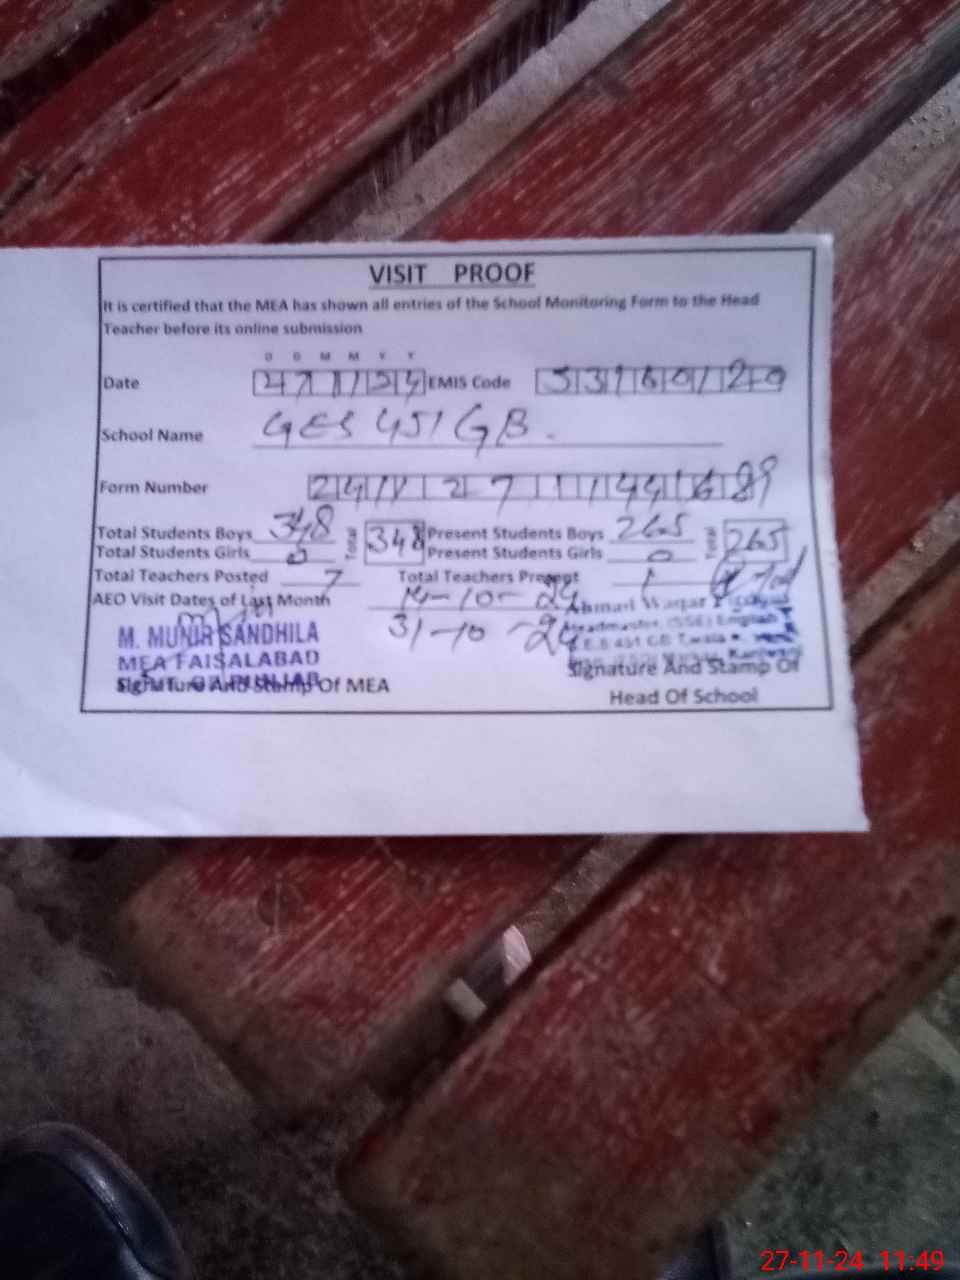 VISIT PROOF
It is certified that the MEA has shown all entries of the School Monitoring Form to the Head
Teacher before its online submission
D D M M Y Y
Date 271124 EMIS Code
School Name GES 451 GB.
Form Number
Total Students Boys 348 Total 348 Present Students Boys 265 Total 265
Total Students Girls 0 Present Students Girls 0
Total Teachers Posted 7 Total Teachers Present
AEO Visit Dates of Last Month 14-10-24
31-10-24
M. MUNIR SANDHILA
MEA FAISALABAD
Signature And Stamp Of MEA
Ahmad Waqar
Headmaster, (SSE) English
Signature And Stamp Of
Head Of School
27-11-24 11:49